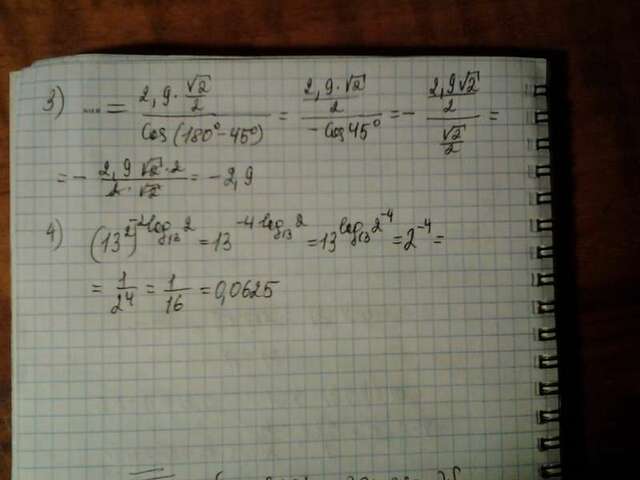 3) ... = (2,9 · √2/2) / (cos(180° - 45°)) = (2,9 · √2 / 2) / (- cos 45°) = - (2,9√2 / 2) / (√2/2) =
= - (2,9 √2 · 2) / (2 · √2) = - 2,9
4) (13²)^(-2log₁₃2) = 13^(-4 log₁₃2) = 13^(log₁₃2⁻⁴) = 2⁻⁴ =
= 1/2⁴ = 1/16 = 0,0625